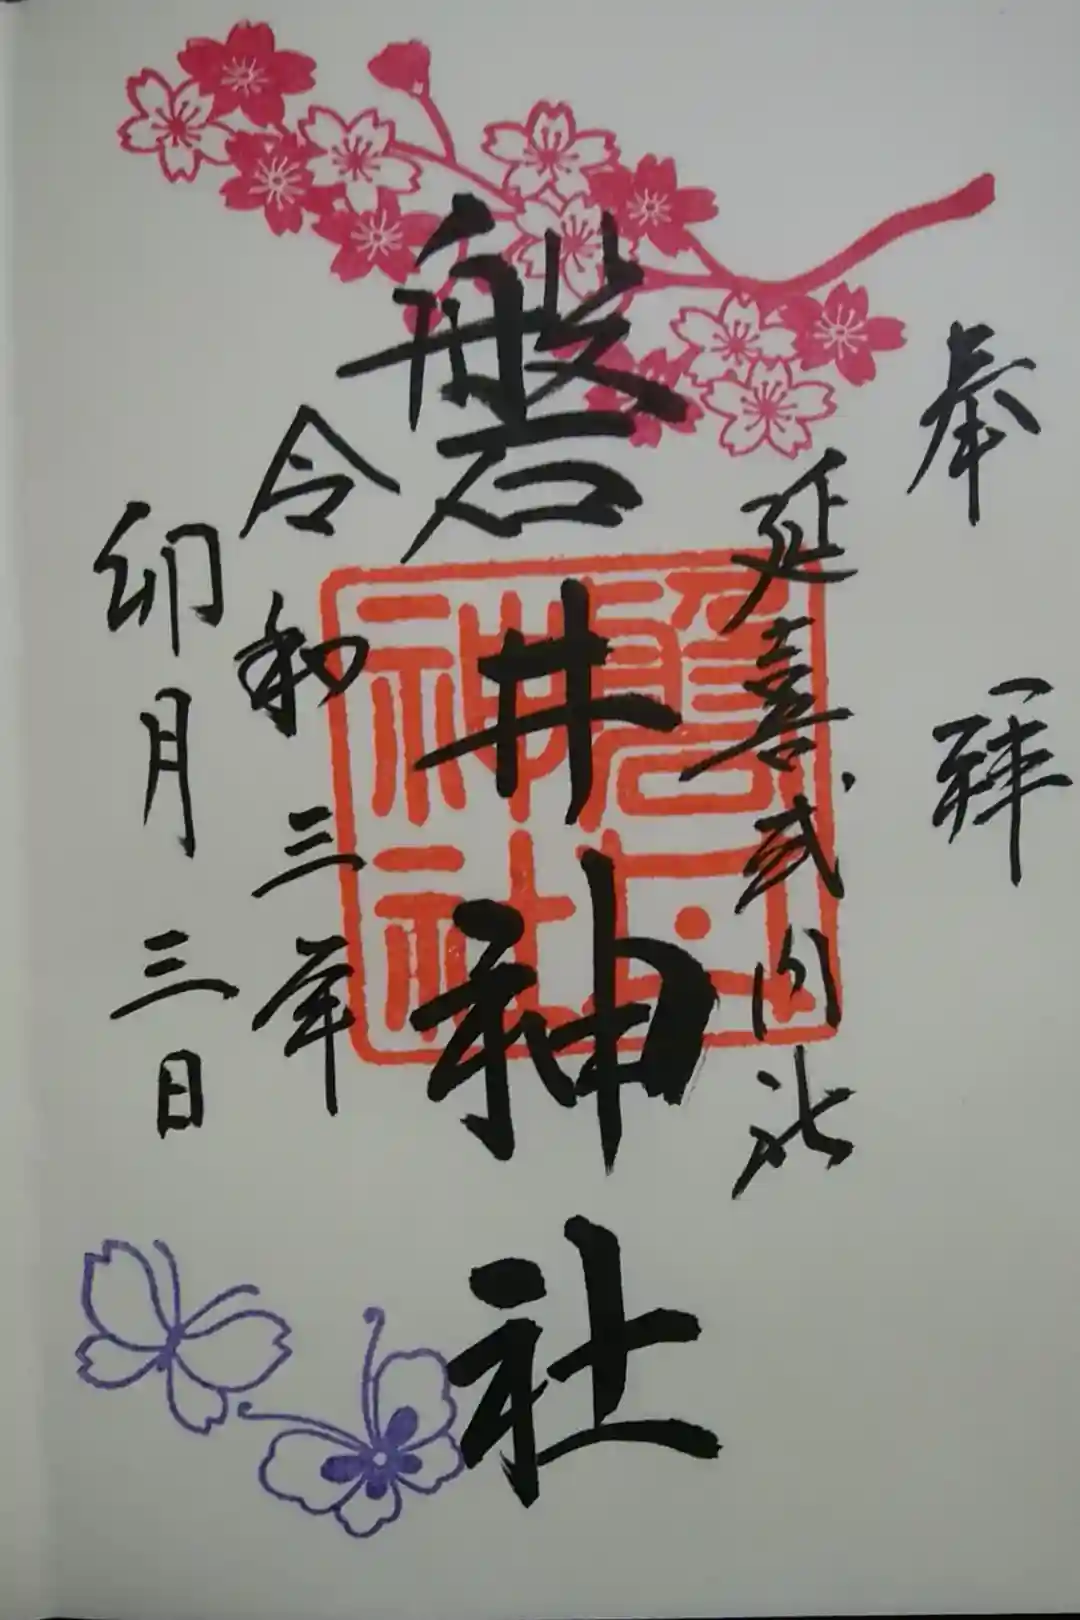 奉拝
延喜式内社
磐井神社
磐井神社
令和三年
卯月三日